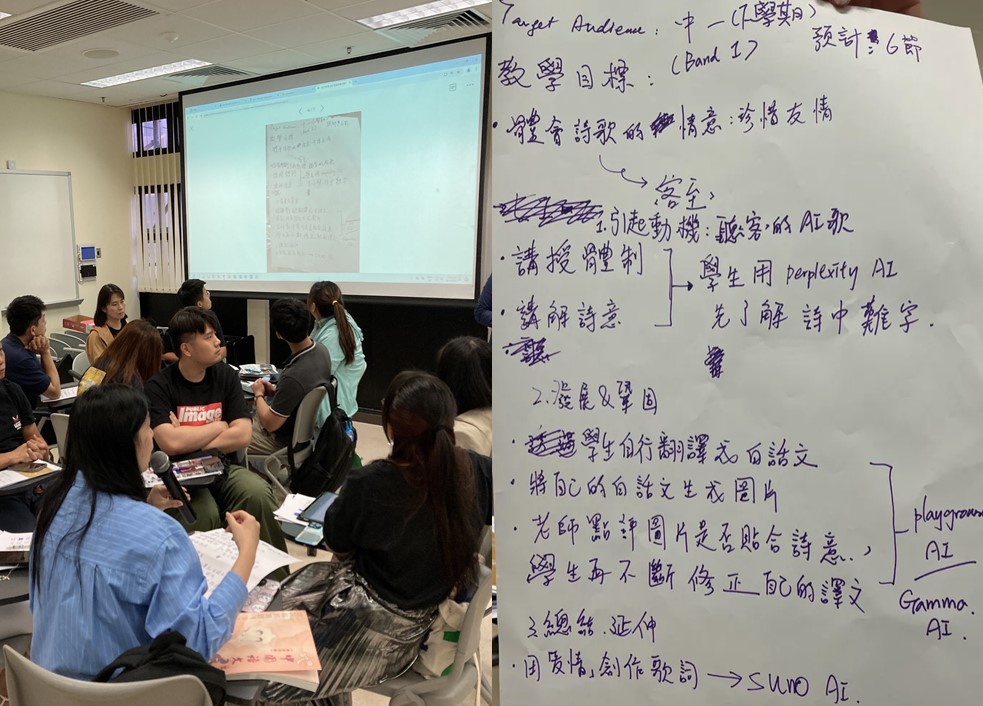 PUBLIC
Image
中國語文
Target Audience: 中一(下學期)
(Band 1)
預計: 6節
教學目標:
·體會詩歌的情意:珍惜友情
客至
1.引起動機:聽「客」的AI歌
·講授體制
·講解詩意
學生用 perplexity AI
先了解詩中難字.
2.發展&鞏固
·學生自行翻譯成白話文
·將自己的白話文生成圖片
·老師點評圖片是否貼合詩意,
學生再不斷修正自己的譯文
playground
AI
Gamma.
AI.
3.總結.延伸
·用「友情」創作歌詞 → suno AI.